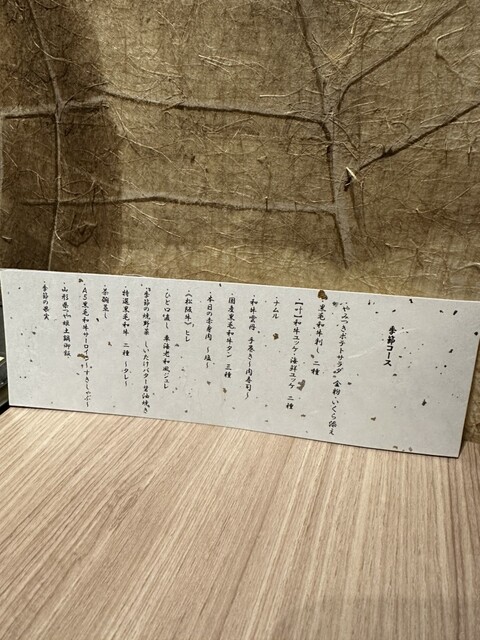 季節コース
・やみつきポテトサラダ 金粉いくら添え
・黒毛和牛刺し 二種
・【叶】和牛ユッケ・海鮮ユッケ 二種
・ナムル
・和牛雲丹 手巻き〜肉寿司〜
・国産黒毛和牛タン 三種
・本日の赤身肉 〜塩〜
・《松阪牛》ヒレ
・ひと口蒸し 車海老和風ジュレ
・季節の焼野菜 〜しいたけバター醤油焼き
・特選黒毛和牛 二種 〜タレ〜
・茶碗蒸し
・A5黒毛和牛サーロイン〜すきしゃぶ〜
・山形県つや姫土鍋御飯
・季節の果実